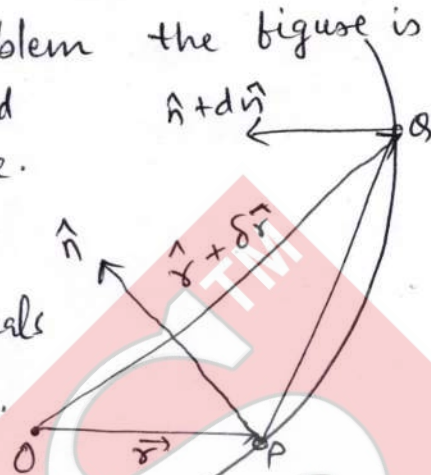 blem the figuse is
d
n̂ + dn̂
Q
e.
n̂
r̂ + δr⃗
TM
als
O
r⃗
P